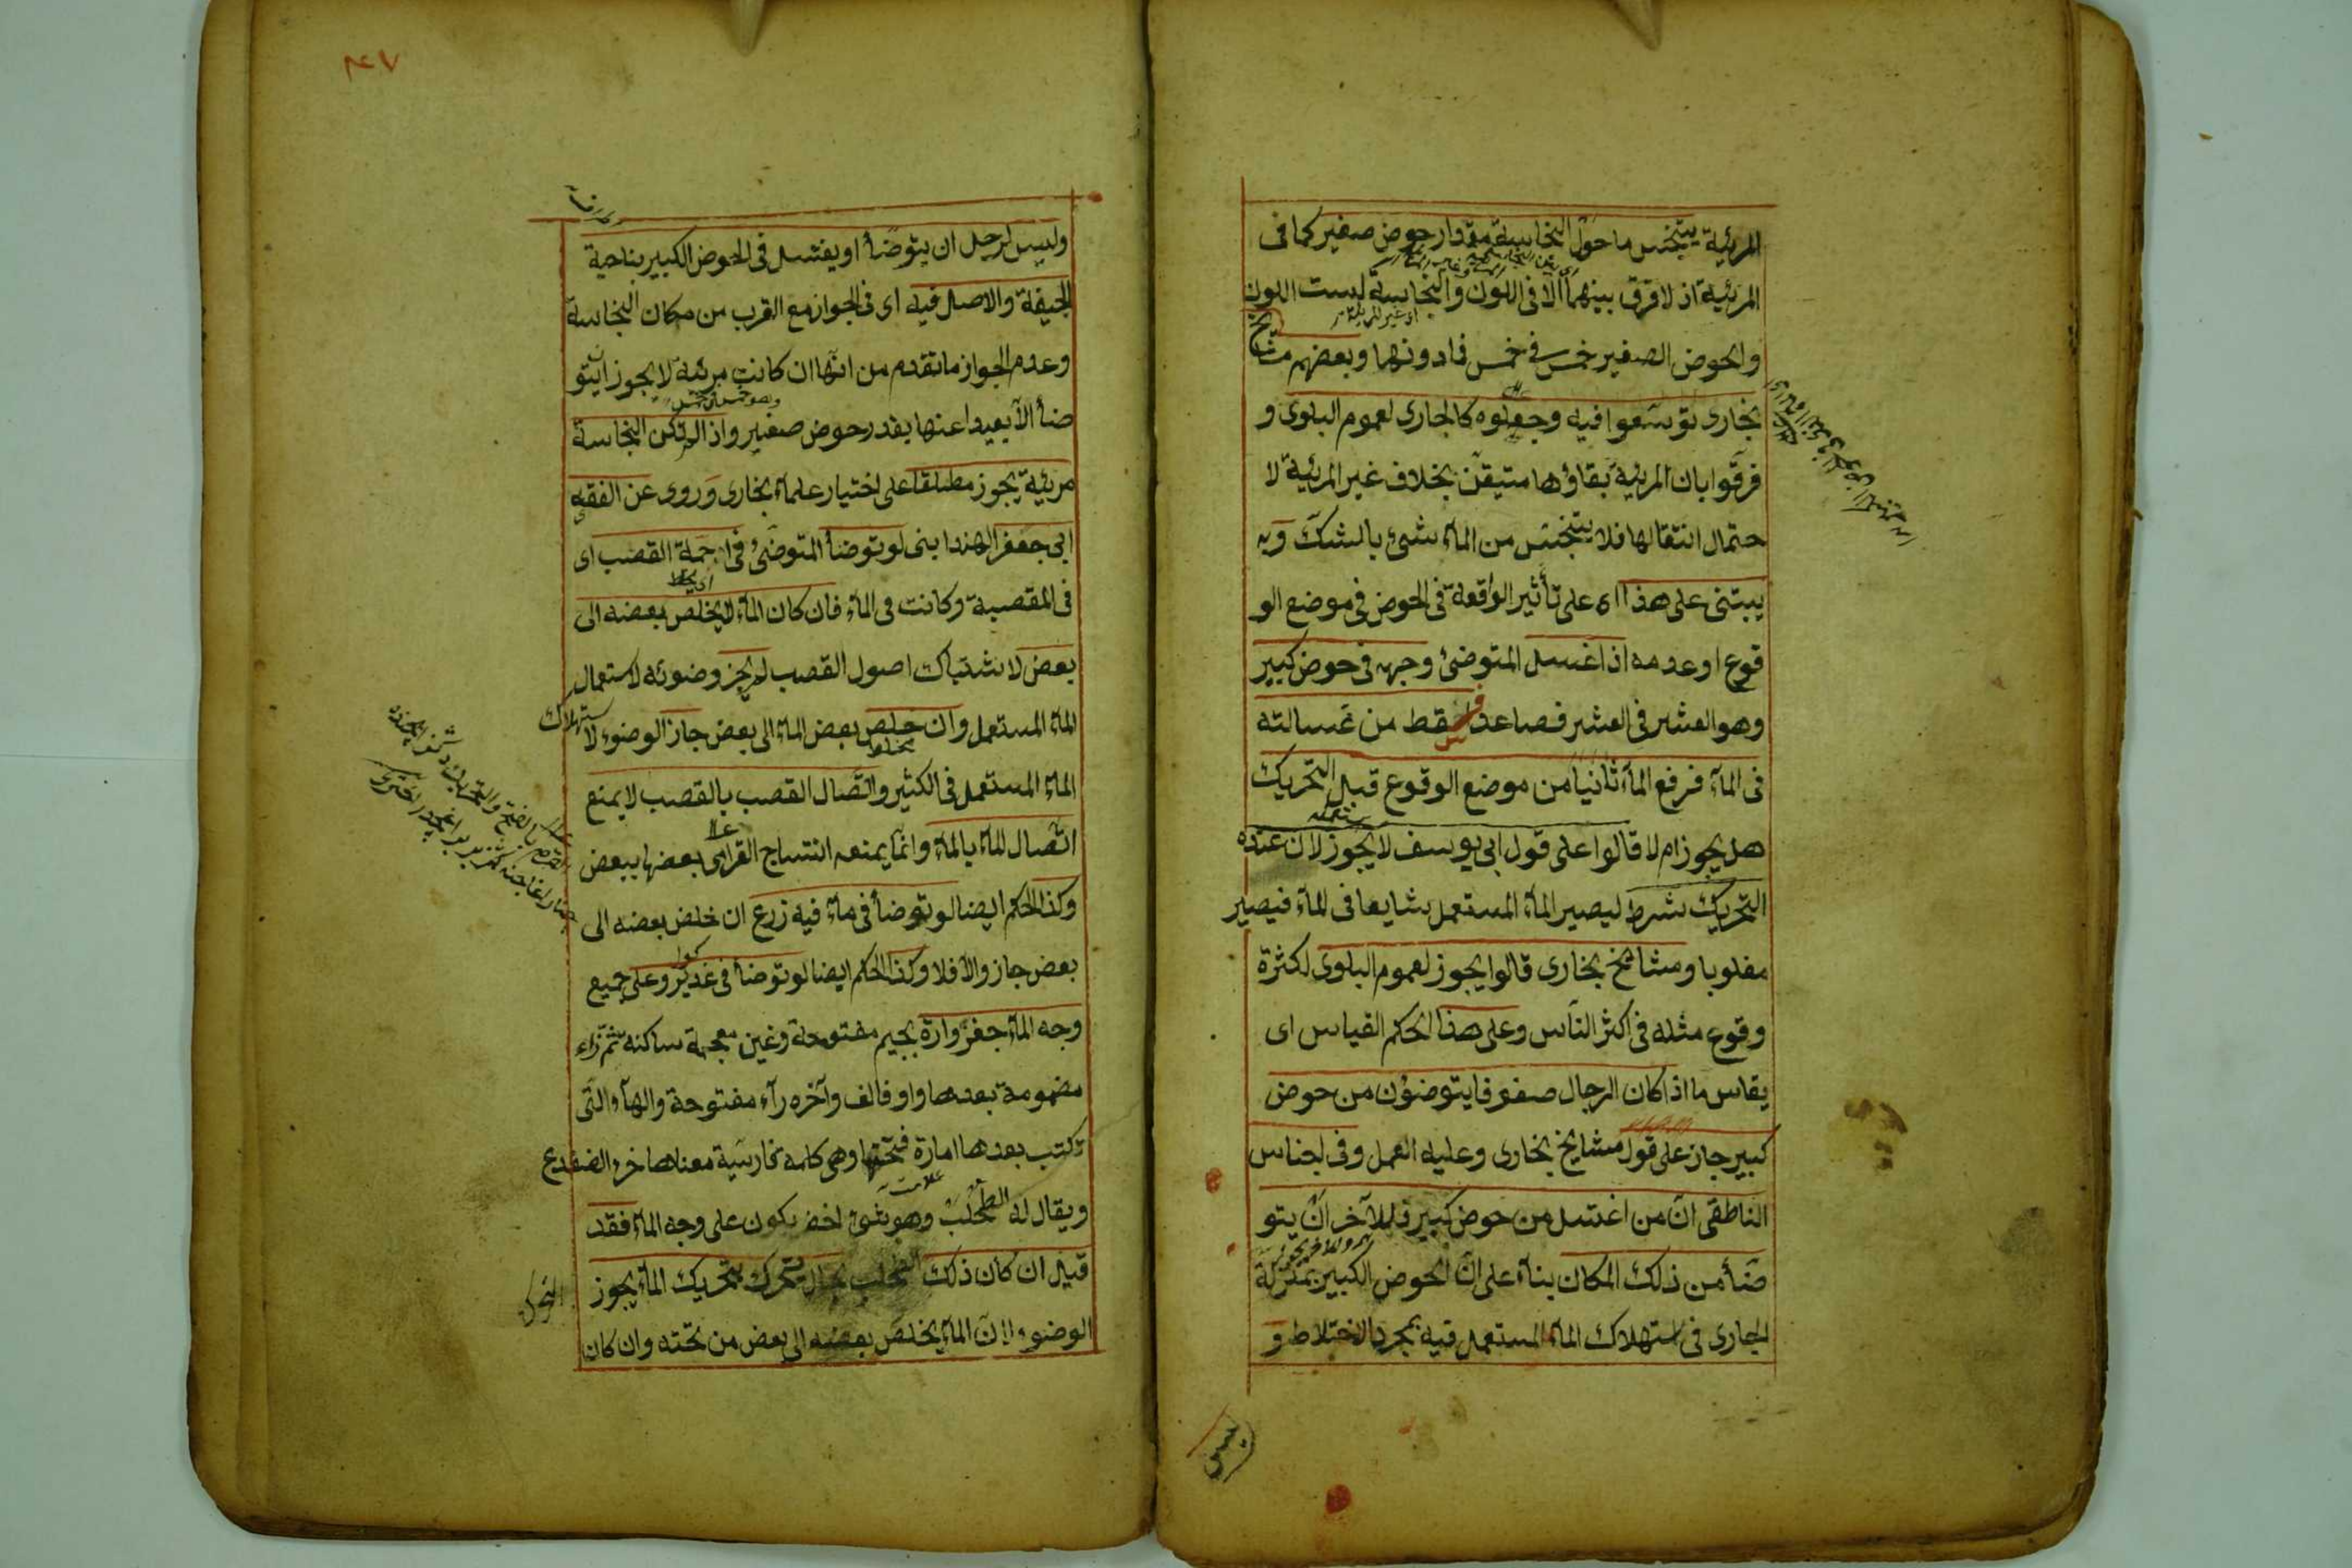 المرئية يتنجس ماحول النجاسة مقدار حوض صغير كما فى
المرئية اذ لا فرق بينهما الا فى اللون والنجاسة ليست اللون
او غير المرئية
والحوض الصغير خمس فى خمس فما دونها وبعضهم مشايخ
بخارى توسعوا فيه وجعلوه كالجارى لعموم البلوى و
فرقوا بان المرئية بقاؤها متيقن بخلاف غير المرئية لا
حتمال انتقالها فلا يتنجس من الماء شئ بالشك وبه
يبتنى على هذا اى على تأثير الواقعة فى الحوض فى موضع الو
قوع او عدمه اذا غسل المتوضئ وجهه فى حوض كبير
وهو العشر فى العشر فصاعدا فسقط من غسالته
فى الماء فرفع الماء ثانيا من موضع الوقوع قبل التحريك
هل يجوز ام لا قالوا على قول ابى يوسف لا يجوز لان عنده
التحريك شرط ليصير الماء المستعمل شايعا فى الماء فيصير
مغلوبا ومشايخ بخارى قالوا يجوز لعموم البلوى لكثرة
وقوع مثله فى اكثر الناس وعلى هذا الحكم القياس اى
يقاس ما اذا كان الرجال صفوفا يتوضؤن من حوض
كبير جاز على قول مشايخ بخارى وعليه العمل وفى اجناس
الناطقى ان من اغتسل من حوض كبير فللآخر ان يتو
ضأ من ذلك المكان بناء على ان الحوض الكبير بمنزلة
الجارى فى استهلاك الماء المستعمل فيه بمجرد الاختلاط و
ليس
٤٧
وليس لرجل ان يتوضأ او يغتسل فى الحوض الكبير بناحية
الجيفة والاصل فيه اى فى الجواز مع القرب من مكان النجاسة
وعدم الجواز ما تقدم من انها ان كانت مرئية لا يجوز ان يتو
ضأ الا بعيدا عنها بقدر حوض صغير واذا لم تكن النجاسة
مرئية يجوز مطلقا على اختيار علماء بخارى وروى عن الفقيه
ابى جعفر الهندوانى لو توضأ المتوضئ فى اجمة القصب اى
فى المقصبة وكانت فى الماء فان كان الماء لا يخلص بعضه الى
بعض لاشتباك اصول القصب لم يجز وضوئه لاستعمال
الماء المستعمل وان خلص بعض الماء الى بعض جاز الوضوء لاستهلاك
الماء المستعمل فى الكثير واتصال القصب بالقصب لا يمنع
اتصال الماء بالماء وانما يمنعه انتساج بعضها ببعض
وكذا الحكم ايضا لو توضأ فى ماء فيه زرع ان خلص بعضه الى
بعض جاز والا فلا وكذا الحكم ايضا لو توضأ فى غدير وعلى جميع
وجه الماء جغزواره بجيم مفتوحة وغين معجمة ساكنه ثم زاء
مضمومة بعدها واو فالف وآخره رآء مفتوحة والهآء التى
تكتب بعدها امارة فتحتها وهى كلمه فارسية معناها خرء الضفدع
ويقال له الطحلب وهو شئ اخضر يكون على وجه الماء فقد
قيل ان كان ذلك الطحلب بحال يتحرك بتحريك الماء يجوز
الوضوء لان الماء يخلص بعضه الى بعض من تحته وان كان